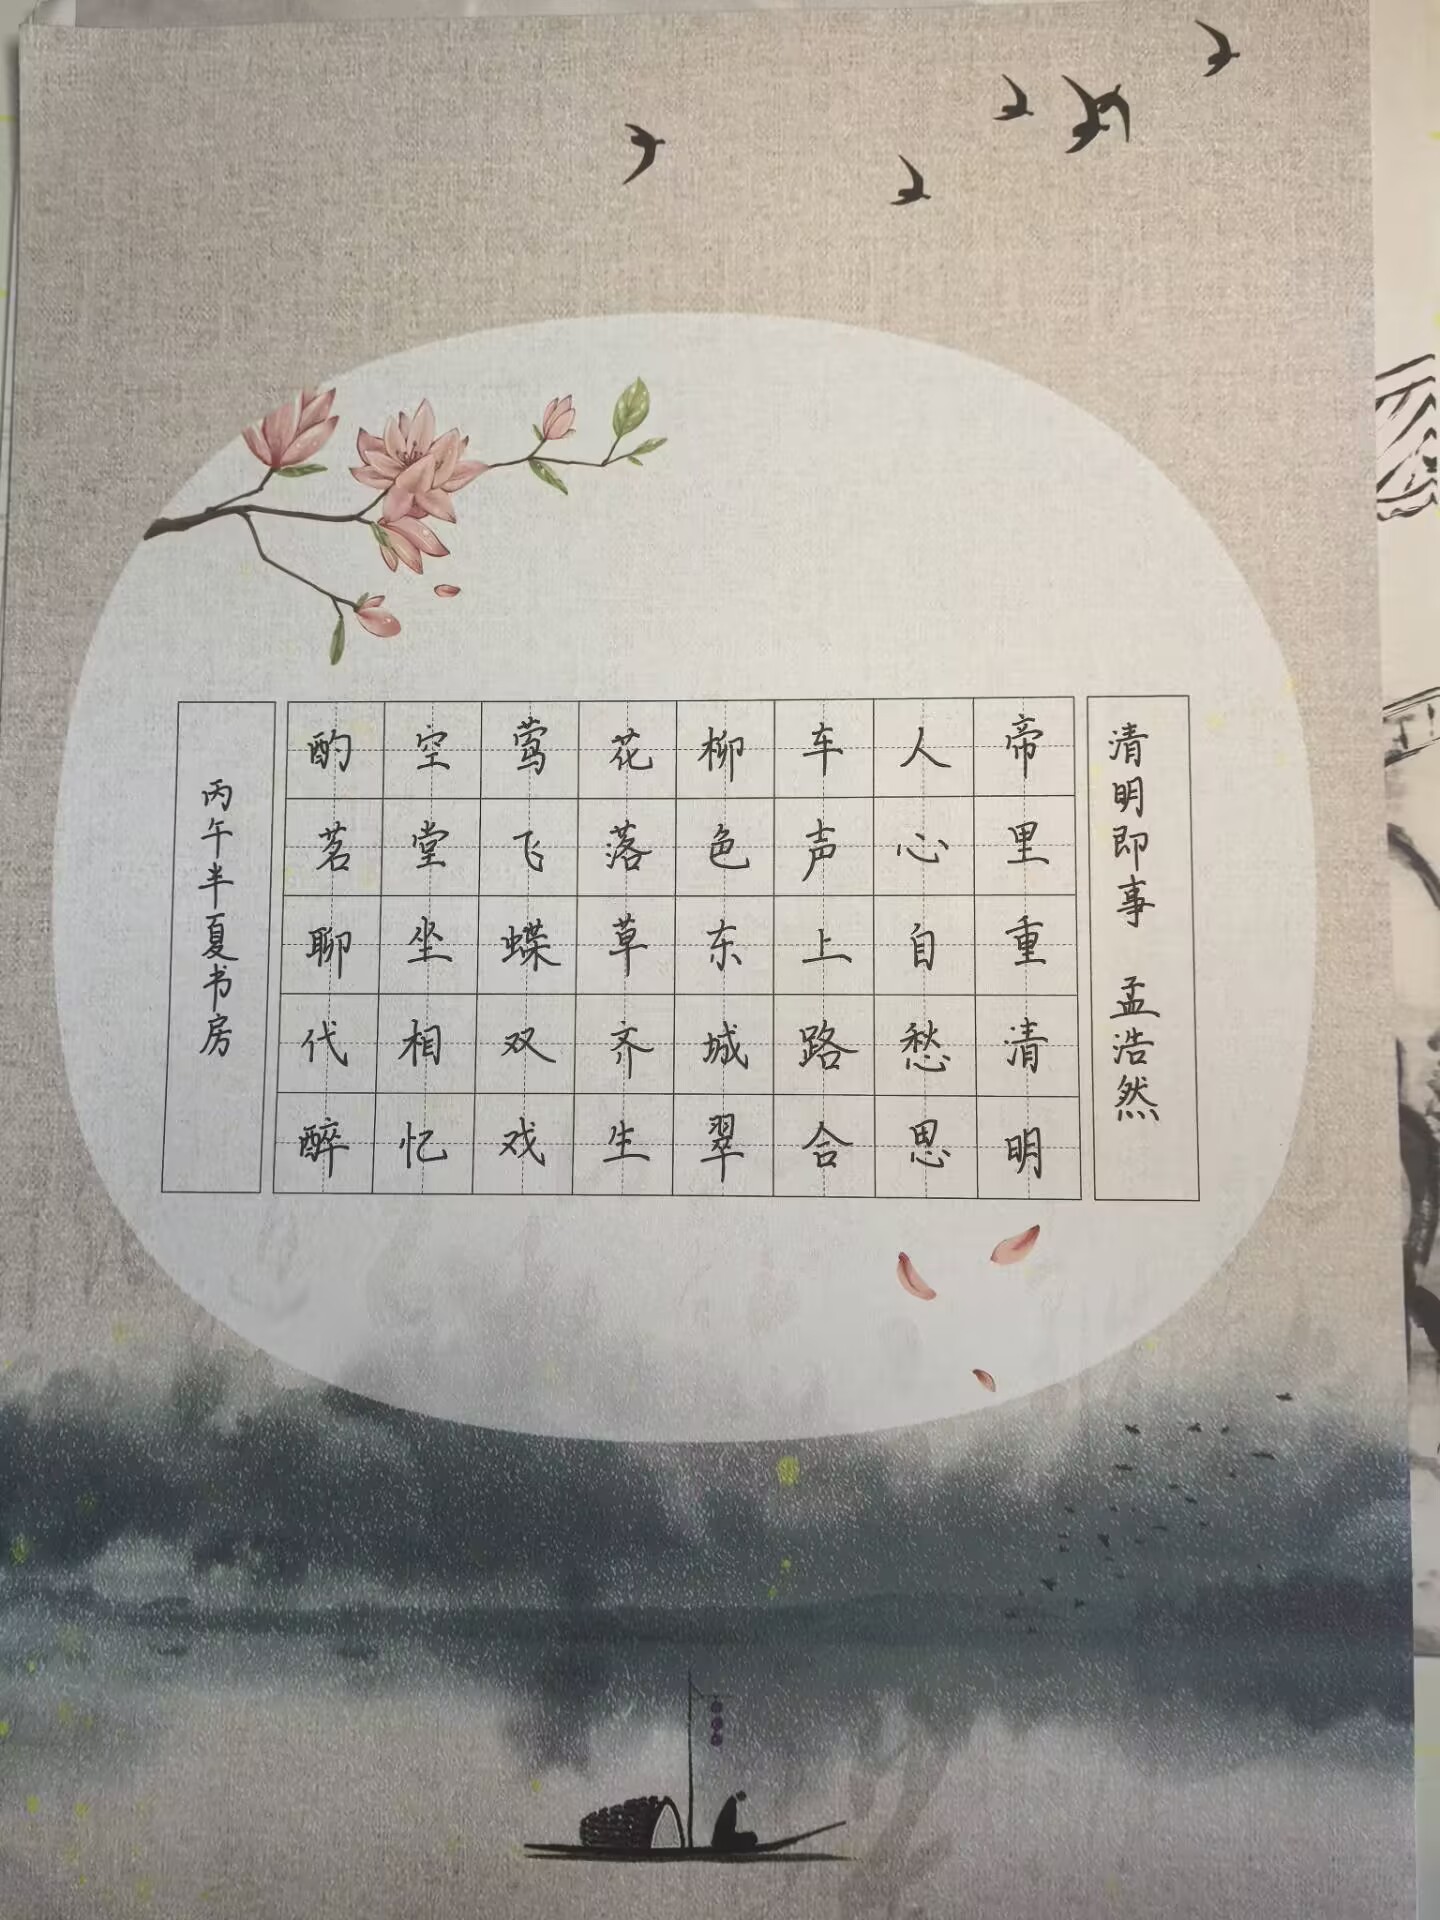 清明即事 孟浩然
帝里重清明
人心自愁思
车声上路合
柳色东城翠
花落草齐生
莺飞蝶双戏
空堂坐相忆
酌茗聊代醉
丙午半夏书房